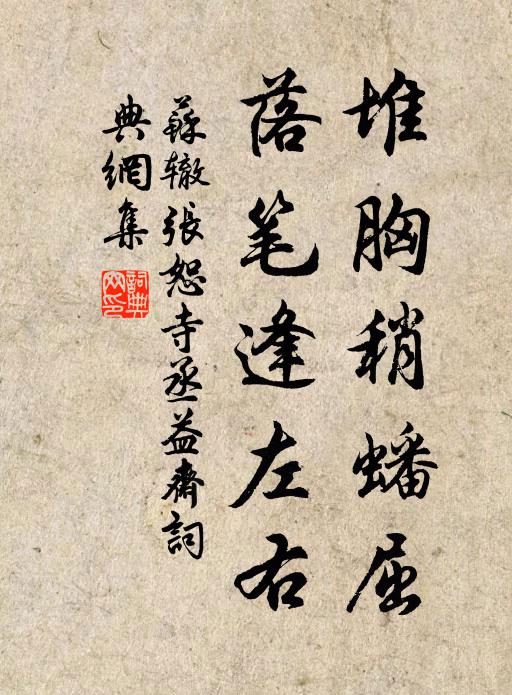 堆胸稍蟠屈
落笔逢左右
蘇辙張恕寺丞益齋詞
典網集
詞典网印